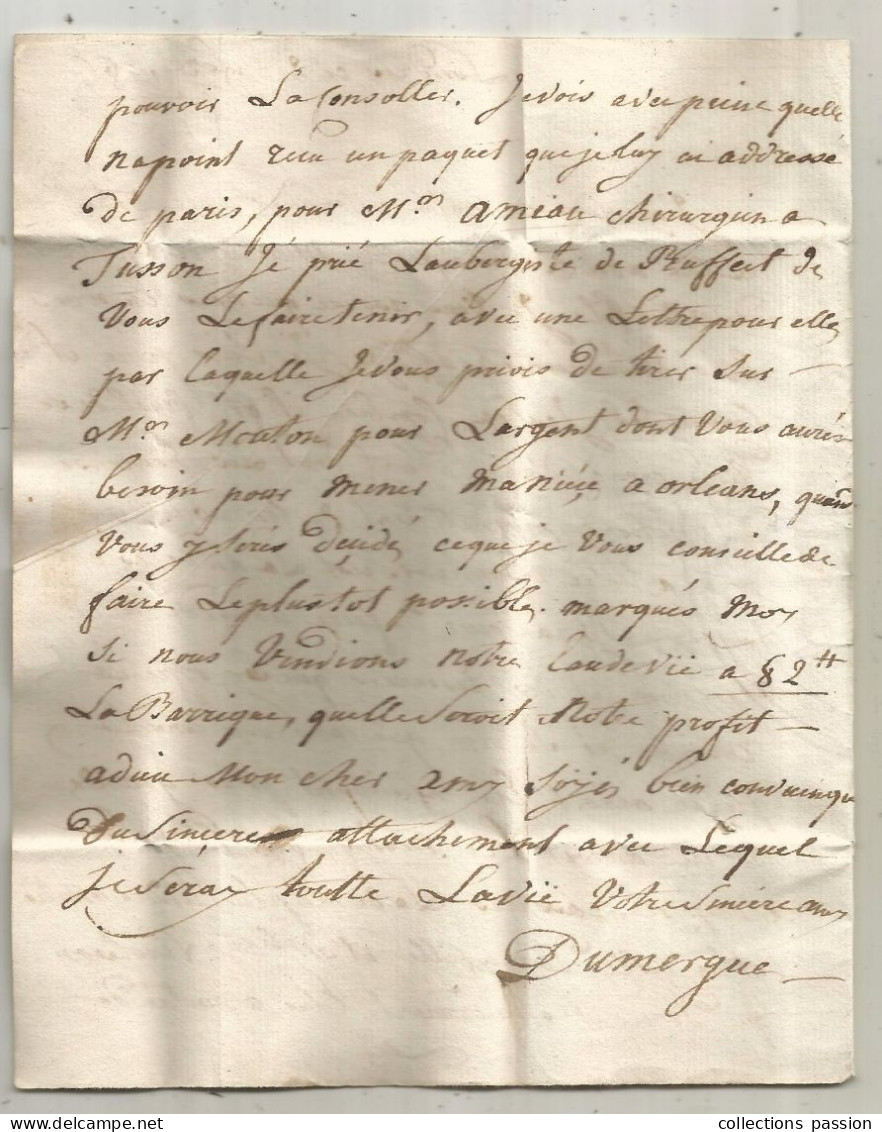 pouvoir La Consoller. Je vois avec peine quelle
na point recu un paquet que je luy ai addressé
de paris, pour Mr. amiau chirurgien a
Tusson Jé prié Laubergiste de Ruffect de
Vous Le faire tenir, avec une Lettre pour elle,
par laquelle Je vous priois de tirer Sur
Mr. Mouton pour Largent dont Vous aurés
besoin pour mener a orleans, quand
Vous y serés déçidé, ce que je Vous conseille de
faire Le plustot possible. marqués moy
si nous Vendions notre Eaudevië a 82 ₶
La Barrique, quelle Seroit Notre profit
adieu Mon cher amy söyés bien convainqu
Du Sincere attachement avec Lequel
je Sérai toutte La vië Votre Sincere amy
Dumergue
collections passion